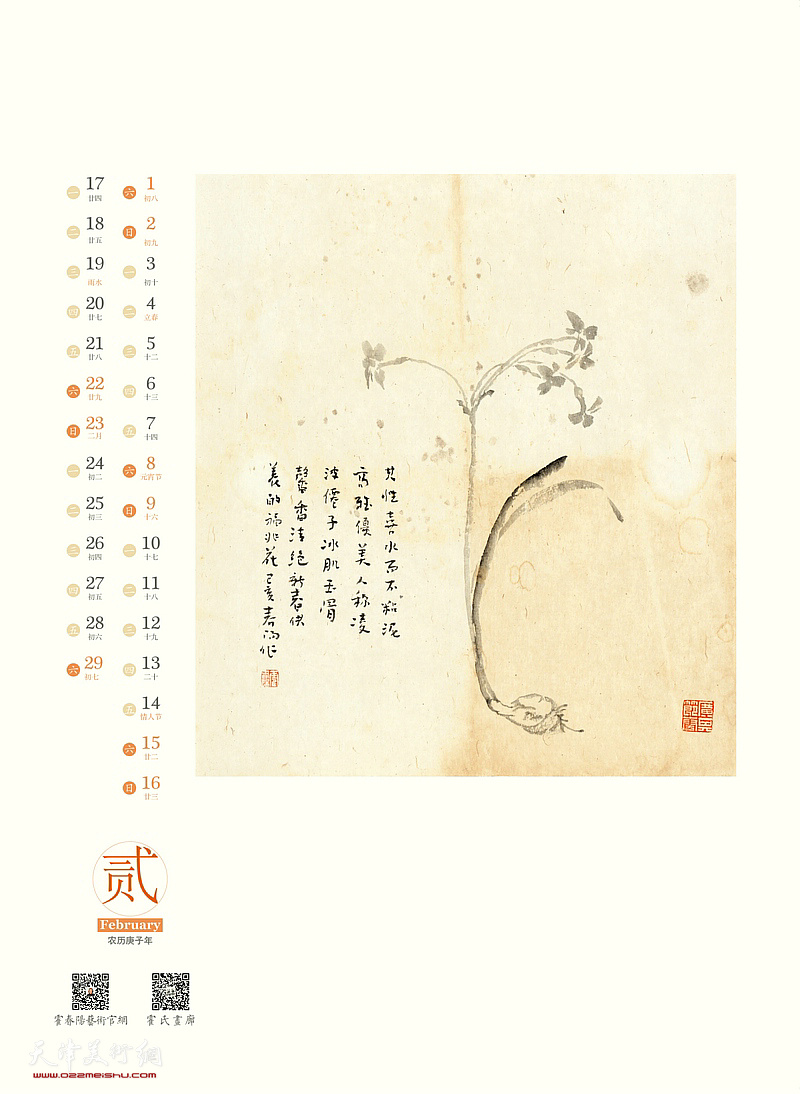 六 1 初八
日 2 初九
一 3 初十
二 4 立春
三 5 十二
四 6 十三
五 7 十四
六 8 元宵节
日 9 十六
一 10 十七
二 11 十八
三 12 十九
四 13 二十
五 14 情人节
六 15 廿二
日 16 廿三
一 17 廿四
二 18 廿五
三 19 雨水
四 20 廿七
五 21 廿八
六 22 廿九
日 23 二月
一 24 初二
二 25 初三
三 26 初四
四 27 初五
五 28 初六
六 29 初七
其性喜水而不粘泥
高雅優美人称凌
波僊子冰肌玉骨
馨香清絕新春供
養的福兆花己亥春陽作
贰
February
农历庚子年
霍春陽藝術官網
霍氏畫廊
天津美術網
www.022meishu.com